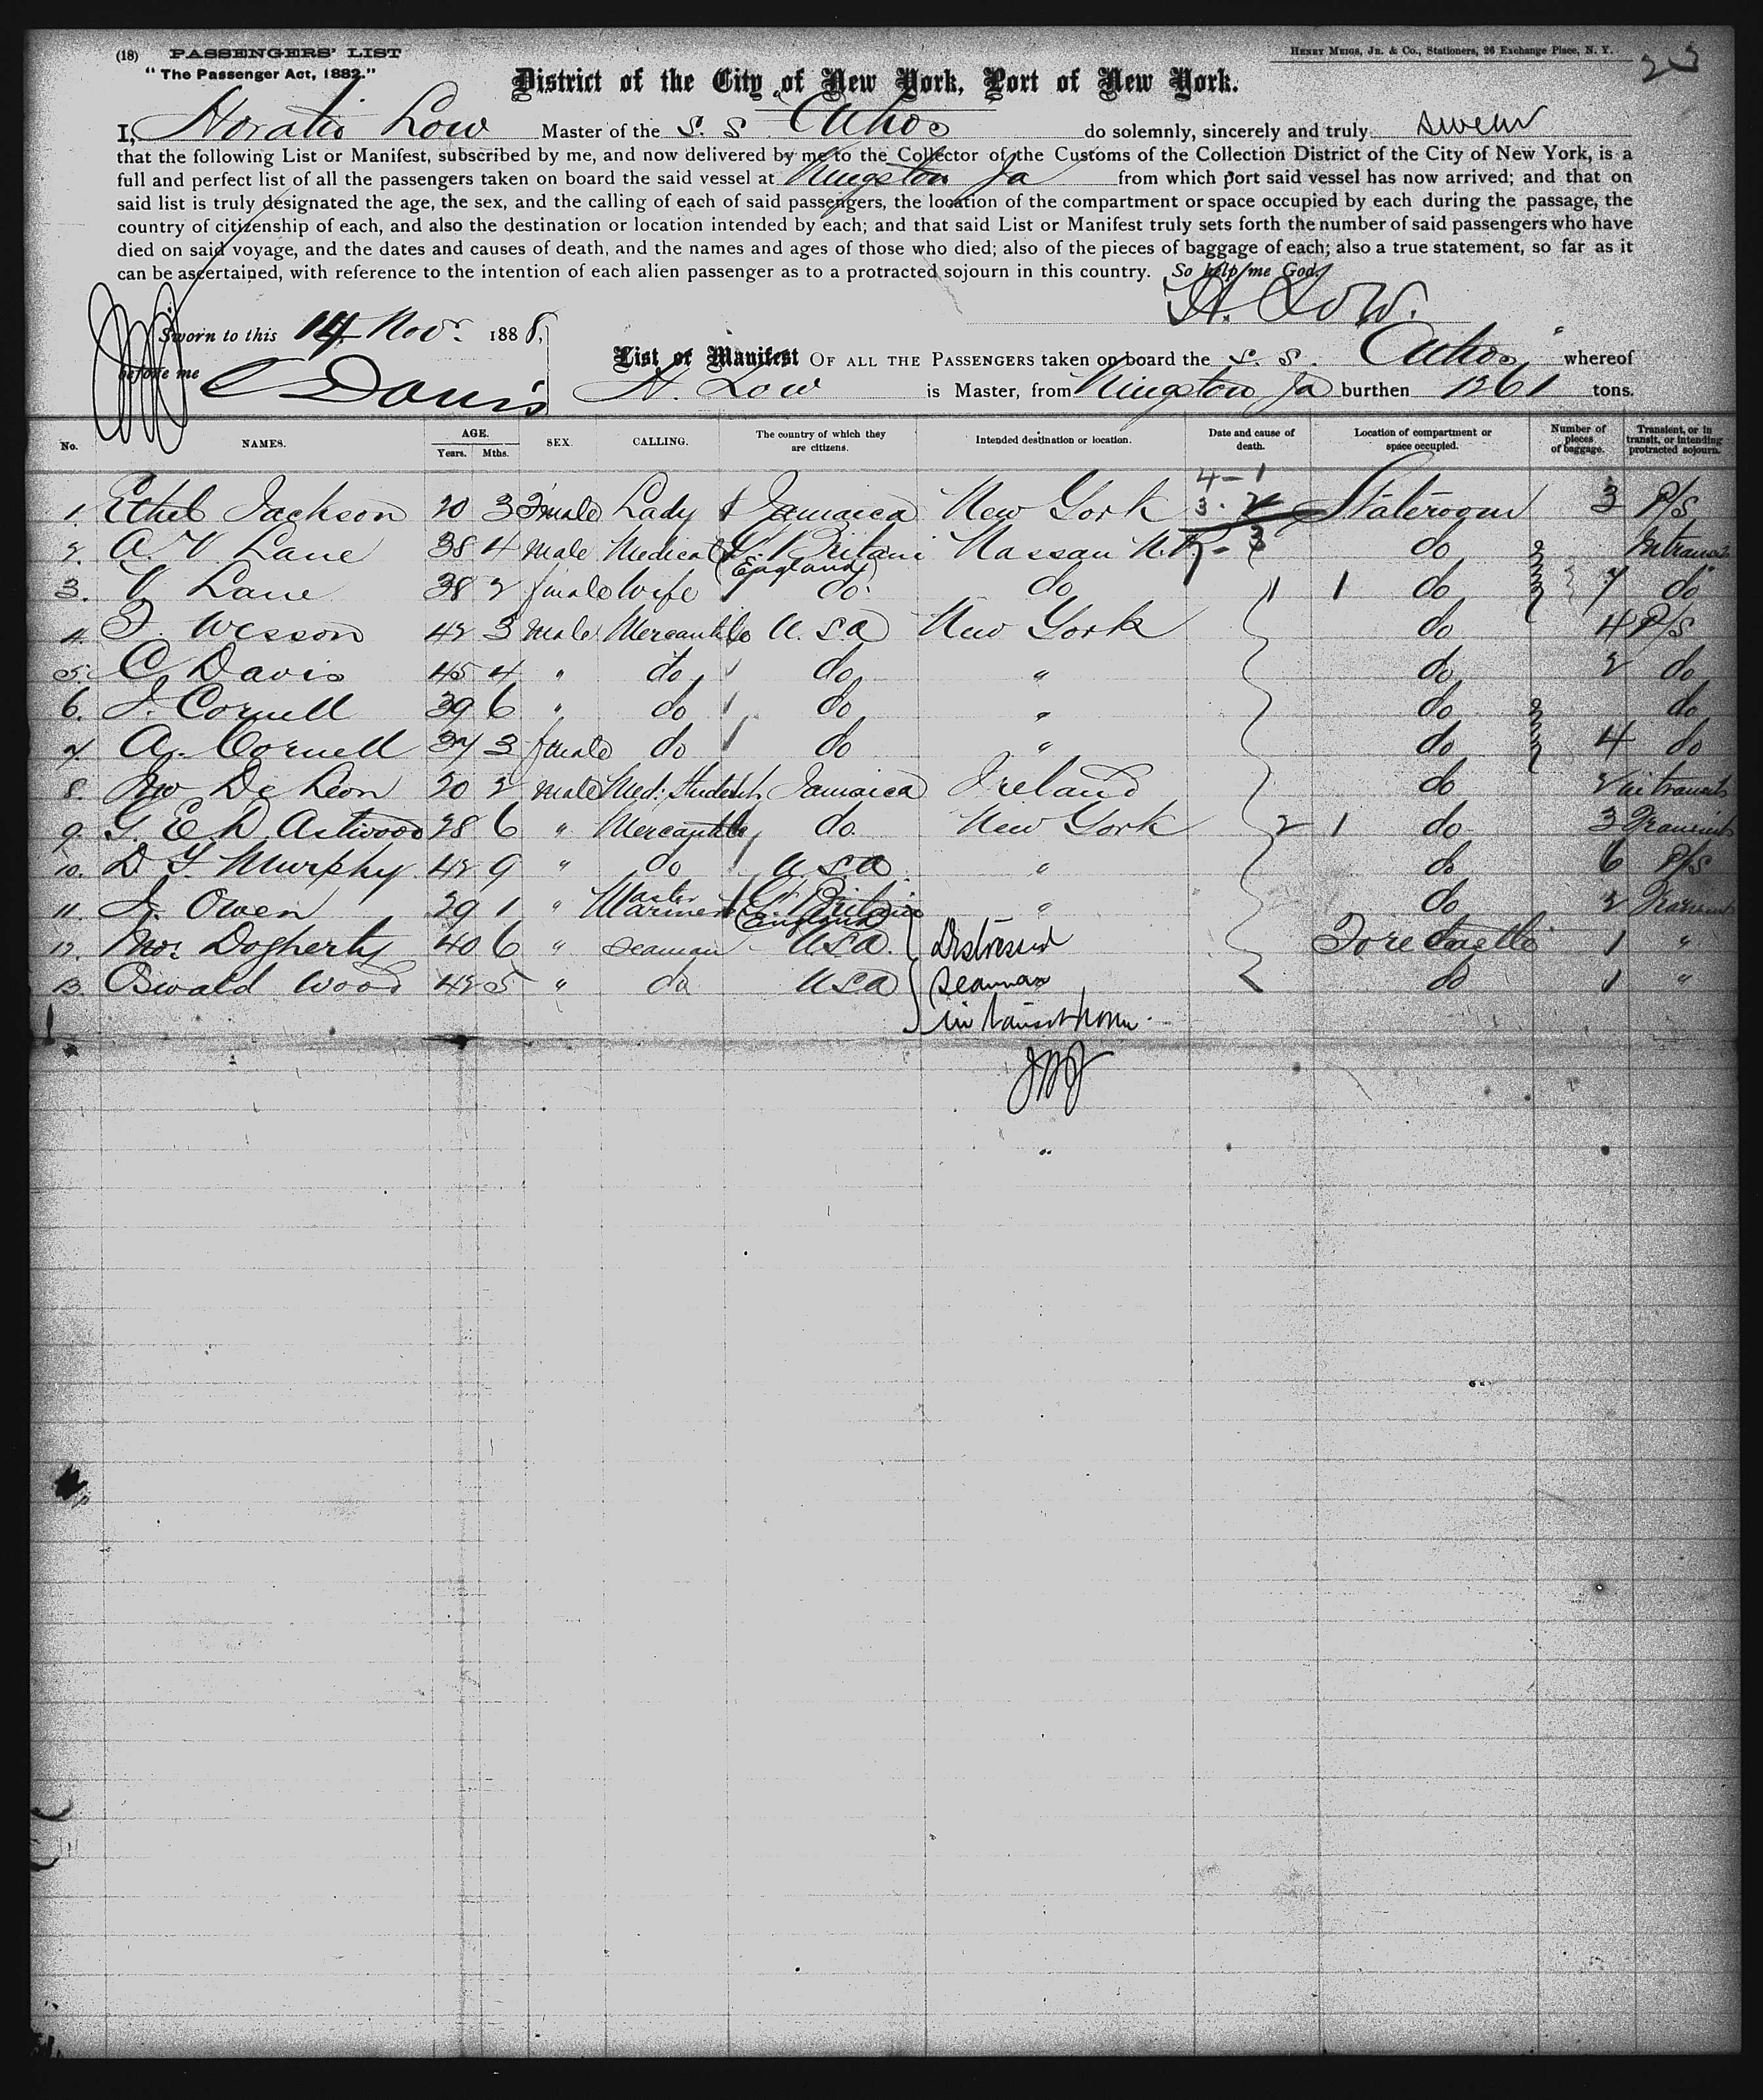 (18) PASSENGERS' LIST
HENRY MEIGS, JR. & CO., Stationers, 26 Exchange Place, N. Y.
"The Passenger Act, 1882."
District of the City of New York, Port of New York.
I, Horatio Low Master of the S. S. Athos do solemnly, sincerely and truly swear
that the following List or Manifest, subscribed by me, and now delivered by me to the Collector of the Customs of the Collection District of the City of New York, is a
full and perfect list of all the passengers taken on board the said vessel at Kingston Ja from which port said vessel has now arrived; and that on
said list is truly designated the age, the sex, and the calling of each of said passengers, the location of the compartment or space occupied by each during the passage, the
country of citizenship of each, and also the destination or location intended by each; and that said List or Manifest truly sets forth the number of said passengers who have
died on said voyage, and the dates and causes of death, and the names and ages of those who died; also of the pieces of baggage of each; also a true statement, so far as it
can be ascertained, with reference to the intention of each alien passenger as to a protracted sojourn in this country. So help me God.
H. Low.
Sworn to this 14 Novr. 1888,
before me C Davis
List or Manifest OF ALL THE PASSENGERS taken on board the S. S. Athos whereof
H. Low is Master, from Kingston Ja burthen 1261 tons.
No. NAMES. AGE. Years. Mths. SEX. CALLING. The country of which they are citizens. Intended destination or location. Date and cause of death. Location of compartment or space occupied. Number of pieces of baggage. Transient, or in transit, or intending protracted sojourn.
4-1
3. 2
1. Ethel Jackson 20 3 Female Lady Jamaica New York Stateroom 3 P/S
2. A. V Lane 38 4 male Medical Gt Britain (England) Nassau N.P. do Intransit
3. V Lane 38 2 female Wife do do 1 1 do 7 do
4. F Wesson 42 3 male Mercantile U.S.A New York do 4 P/S
5. C Davis 45 4 " do do " do 2 do
6. J. Cornell 39 6 " do do " do do
7. A. Cornell 37 3 female do do " do 4 do
8. Jno De Leon 20 2 male Med: Student Jamaica Ireland do 2 in transit
9. G. E A Astwood 28 6 " Mercantile do New York 2 1 do 3 Transient
10. D. F. Murphy 42 9 " do U.S.A " do 6 P/S
11. J. Owen 29 1 " Master Mariner Gt Britain (England) " do 2 Transient
12. Jno. Dogherty 40 6 " Seaman U.S.A. Distressed Forecastle 1 "
13. Oswald Wood 42 5 " do U.S.A Seaman do 1 "
in transit home